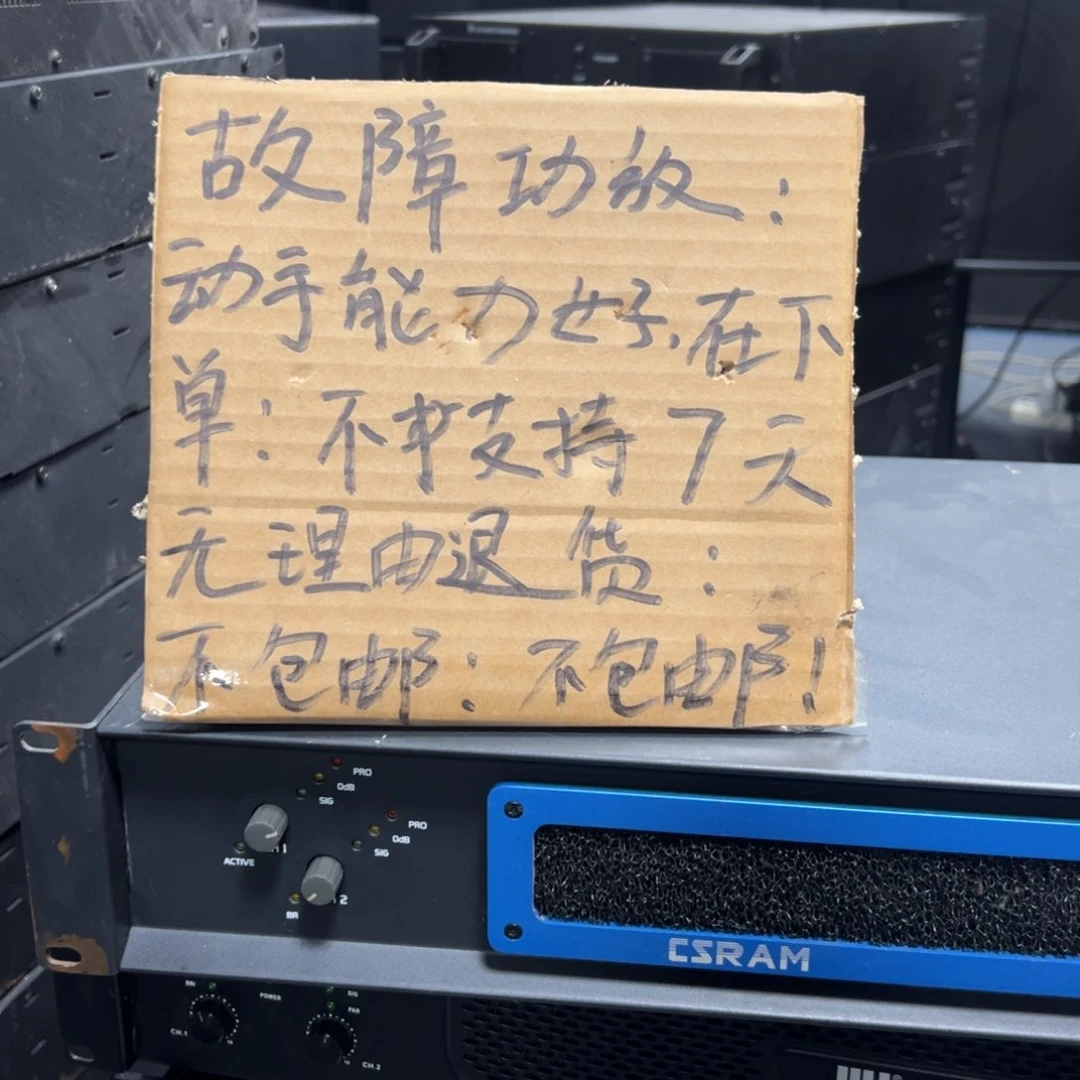 故障功放：
动手能力好，在下
单：不支持7天
无理由退货：
不包邮：不包邮！
PRO
0dB
SIG
PRO
0dB
SIG
ACTIVE
2
CSRAM
POWER
SIG
CH.1
CH.2